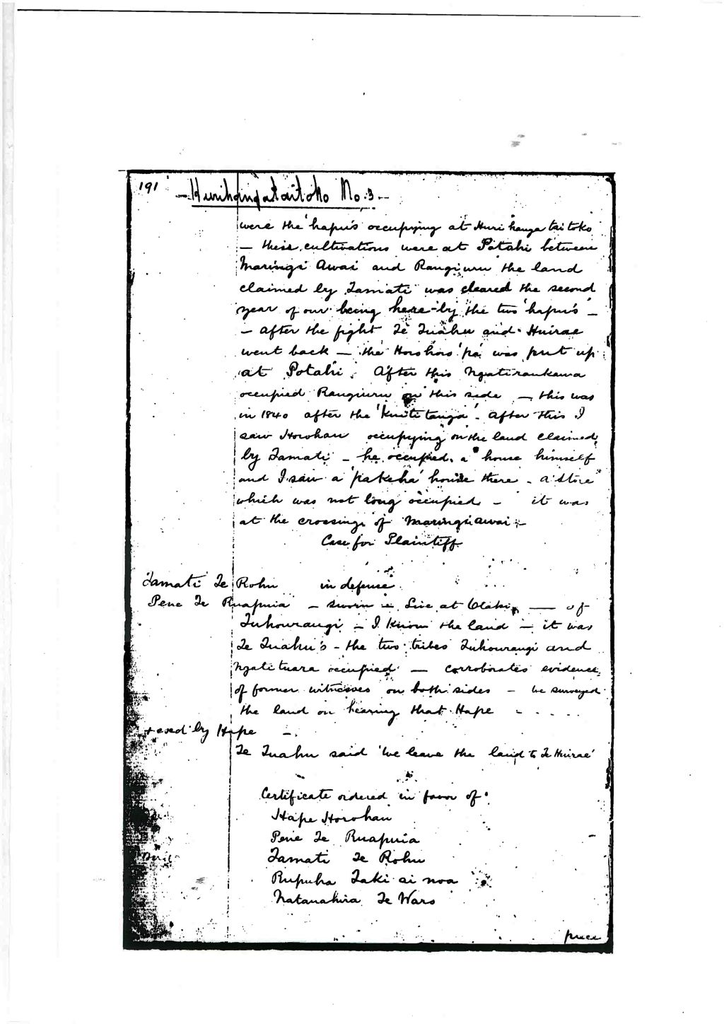 191 - Hurihangataitoko No. 3 -
were the hapu's occupying at Huri hanga tai toko
- their cultivations were at Potahi between
Maringi Awai and Rangiuru the land
claimed by Tamati was cleared the second
year of our being here - by the two 'hapu's' -
- after the fight Te Tuahu and Huirae
went back - the Horohoro 'pa' was put up
at Potahi. After this Ngatiraukawa
occupied Rangiuru on this side - this was
in 1840 after the 'Kuititanga'. After this I
saw Horohau occupying on the land claimed
by Tamati - he occupied a house himself
and I saw a 'pakeha' house there - a store
which was not long occupied - it was
at the crossing of Maringiawai -
Case for Plaintiff
Tamati Te Rohu in defense
Pene Te Ruapuia - sworn - Live at Otaki - of
Tuhourangi - I know the land - it was
Te Tuahu's - the two tribes Tuhourangi and
Ngatituara occupied - corroborates evidence
of former witnesses on both sides - we surveyed
the land on hearing that Hape - ....
+ exd by Hape -
Te Tuahu said 'we leave the land to Te Huirae'
Certificate ordered in favor of
Hape Horohau
Pene Te Ruapuia
Tamati Te Rohu
Rupuha Taki ai noa
Natanahira Te Waro